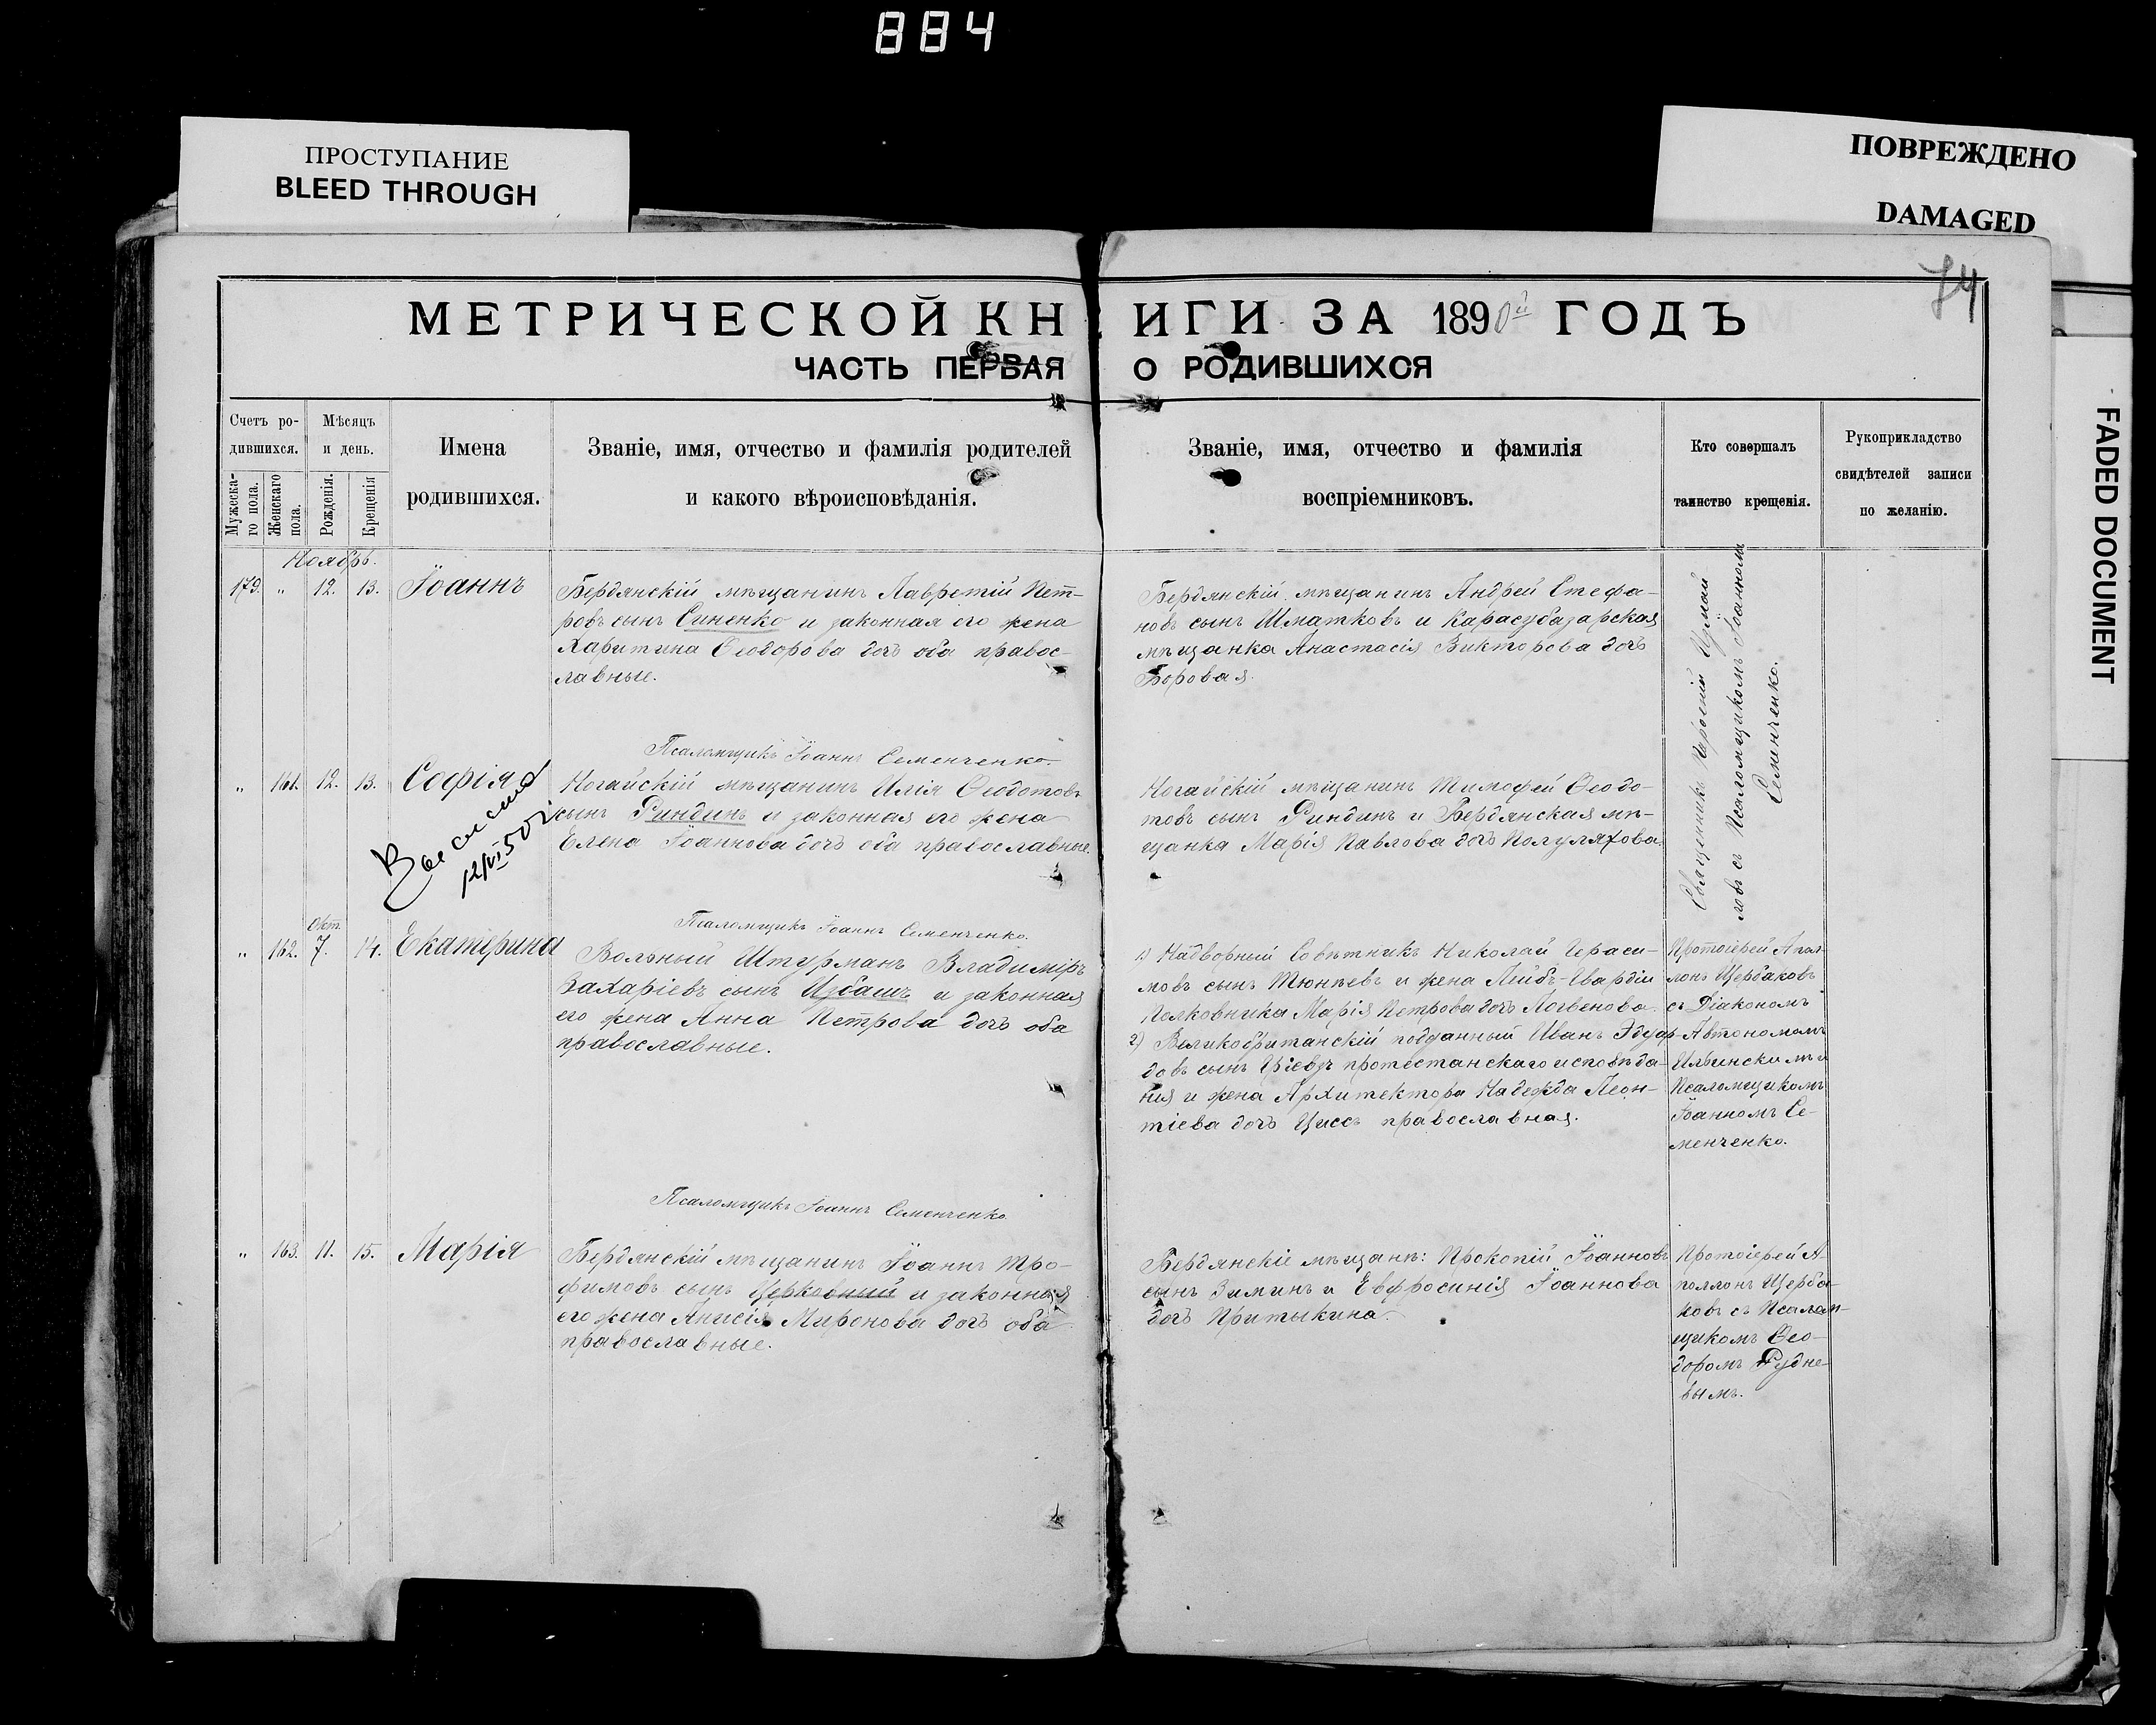 884
ПРОСТУПАНИЕ
BLEED THROUGH
ПОВРЕЖДЕНО
DAMAGED
FADED DOCUMENT
74
МЕТРИЧЕСКОЙ КНИГИ ЗА 1890й ГОДЪ
ЧАСТЬ ПЕРВАЯ О РОДИВШИХСЯ
Счетъ ро-
дившихся.
Мужеска-
го пола.
Женскаго
пола.
Мѣсяцъ
и день.
Рожденія.
Крещенія
Имена
родившихся.
Званіе, имя, отчество и фамилія родителей
и какого вѣроисповѣданія.
Званіе, имя, отчество и фамилія
воспріемниковъ.
Кто совершалъ
таинство крещенія.
Рукоприкладство
свидѣтелей записи
по желанію.
Ноябрь.
179. " 12. 13. Іоаннъ
Бердянскій мѣщанинъ Лаврентій Пет-
ровъ сынъ Синенко и законная его жена
Харитина Ѳеодорова дочь оба правос-
лавные.
Бердянскій мѣщанинъ Андрей Стефа-
новъ сынъ Шматковъ и Карасубазарская
мѣщанка Анастасія Викторова дочь
Боровая.
Священникъ
ловъ съ Псаломщикомъ Іоанномъ
Семенченко.
Псаломщикъ Іоаннъ Семенченко.
" 161. 12. 13. Софія
Ногайскій мѣщанинъ Илія Ѳеодотовъ
сынъ Риндинъ и законная его жена
Елена Іоаннова дочь оба православные.
Ногайскій мѣщанинъ Тимофей Ѳеодо-
товъ сынъ Риндинъ и Бердянская мѣ-
щанка Марія Павлова дочь Полуляхова.
Псаломщикъ Іоаннъ Семенченко.
Окт.
" 162. 7. 14. Екатерина
Вольный Штурманъ Владиміръ
Захаріевъ сынъ Избашъ и законная
его жена Анна Петрова дочь оба
православные.
1) Надворный Совѣтникъ Николай Гераси-
мовъ сынъ Тюнѣевъ и жена Лейбъ-Гвардіи
Полковника Марія Петрова дочь Логвенова.
2) Великобританскій подданный Иванъ Эдуар-
довъ сынъ Гріевзъ протестанскаго исповѣда-
нія и жена Архитектора Надежда Леон-
тіева дочь Циссъ православная.
Протоіерей Апол-
лонъ Щербаковъ
съ Діакономъ
Автономомъ
Ильинскимъ и
Псаломщикомъ
Іоанномъ Се-
менченко.
Псаломщикъ Іоаннъ Семенченко
" 163. 11. 15. Марія
Бердянскій мѣщанинъ Іоаннъ Тро-
фимовъ сынъ Церковный и законная
его жена Анисія Миронова дочь оба
православные.
Бердянскіе мѣщане: Прокопій Іоанновъ
сынъ Зиминъ и Евфросинія Іоаннова
дочь Притыкина.
Протоіерей А-
поллонъ Щерба-
ковъ съ Псалом-
щикомъ Ѳео-
доромъ Рудне-
вымъ.